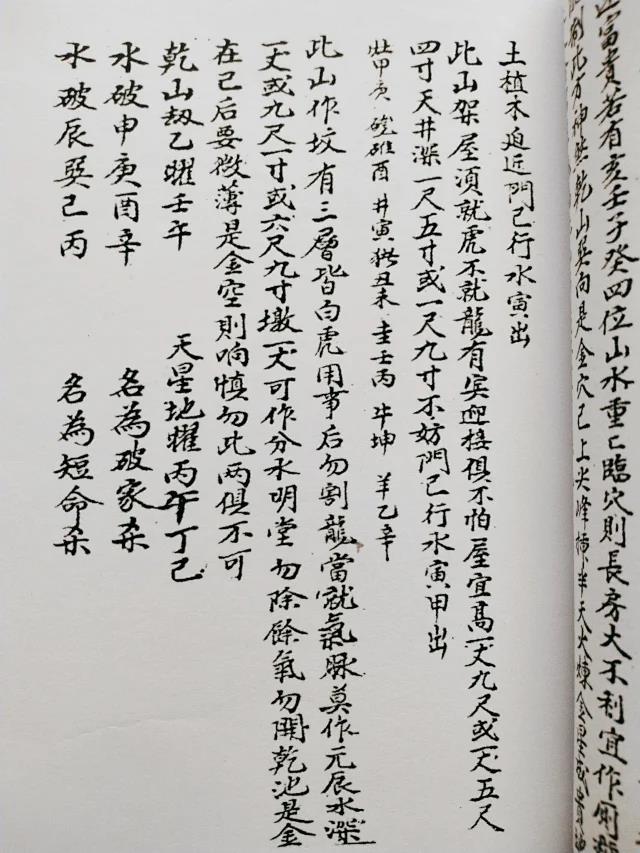 富貴若有亥壬子癸四位山水重亡臨穴則長房大不利宜作厠
神 乾山巽向是金穴巳上尖峰插半天火煉金星
土植木迫近門己行水寅出
此山架屋須就虎不就龍有宾迎接俱不怕屋宜髙一丈九尺或一丈五尺
四寸天井深一尺五寸或一尺九寸不妨門己行水寅甲出
灶甲庚 碓酉 井寅 丑未 圭壬丙 牛坤 羊乙辛
此山作坟有三層皆白虎用事后勿割龍當就氣脉莫作元辰水深
一丈或九尺一寸或六尺九寸墩一丈可作分水明堂勿除餘氣勿開乾池是金
在己后要微薄是金空則响慎勿此兩俱不可
乾山劫乙曜壬午 天星地曜丙午丁己
水破申庚酉辛 名為破家杀
水破辰巽己丙 名為短命杀